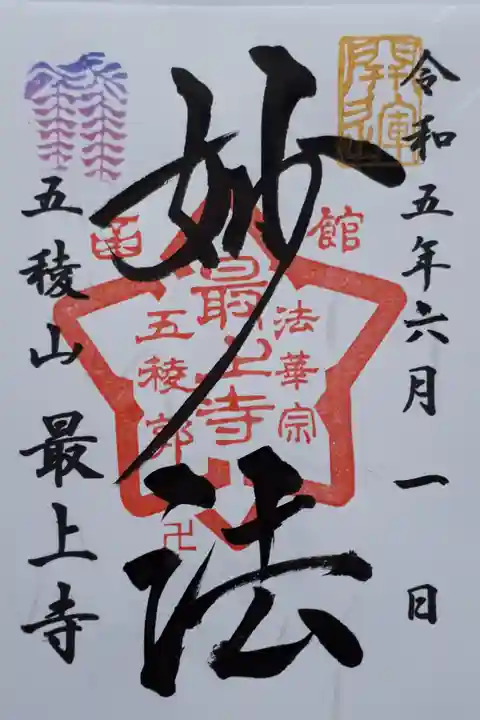 令和五年六月一日
開運
妙法
函館
法華宗
最上寺
五稜郭
卍
五稜山 最上寺